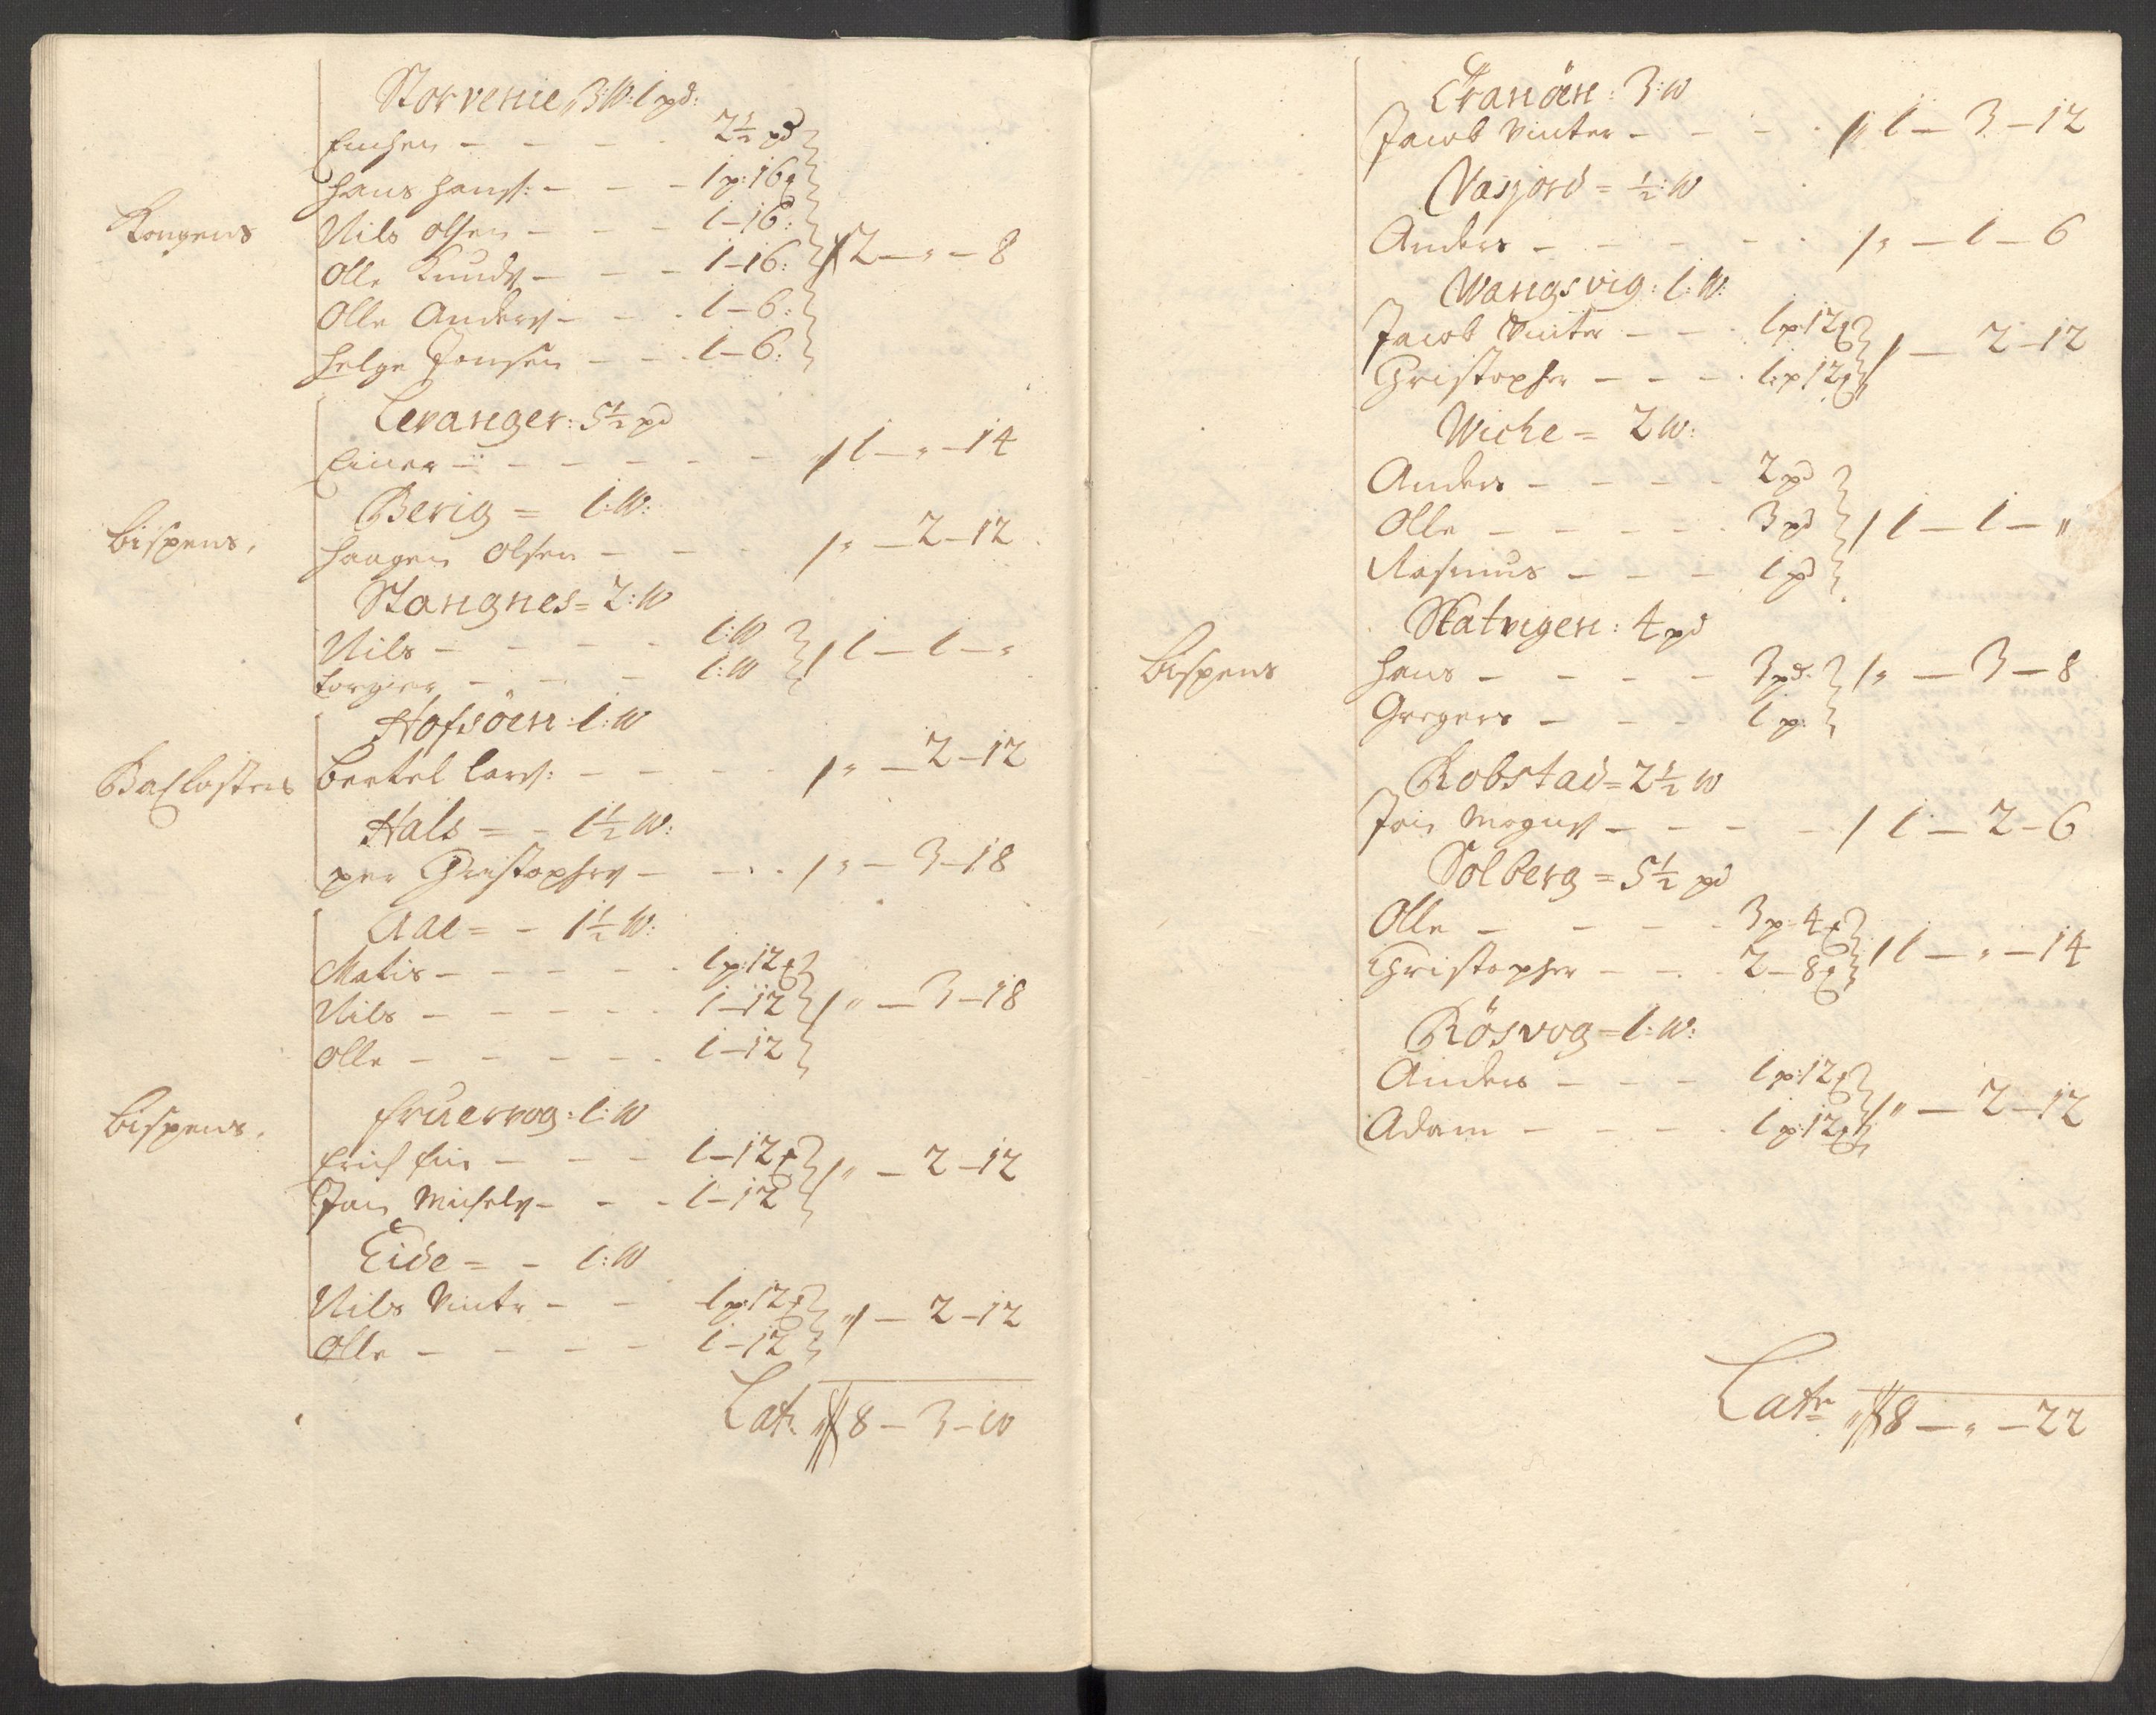 Storvenie 3:W:1 pd:
Einer - - - - 2½ pd
Hans Hanss: - - - 1 p: 16
Kongens Nils Olsen - - - 1-16:
Olle Knuds - - - 1-16: 2 - " - 8
Olle Anders - - - 1-6:
Helge Jonsen - - - 1-6:
Levanger: 5½ pd
Einer - - - - - - 1 - " - 14
Berig = 1:W:
Bispens, Haagen Olsen - - - " - 2 - 12
Stangnes = 2:W
Nils - - - - 1:W
Torgier - - - - 1:W 1 - 1 - "
Hofsöen: 1:W
Baclosters Bertel Lars: - - - - " - 2 - 12
Hals = - 1½ W:
per Christophers - - - " - 3 - 18
Aae = - 1½ W:
Matis - - - - - 1 p: 12
Nils - - - - - 1-12 " - 3 - 18
Olle - - - - - 1-12
Fruervog: 1:W
Bispens. Erich Fin - - - 1-12
Jon Michels - - - 1-12 " - 2 - 12
Eide = - 1:W
Nils Vintr - - 1 p: 12
Olle - - - - 1-12 " - 2 - 12
Lat. 8 - 3 - 10
Tranöen: 3:W
Jacob Vinter - - - - " 1 - 3 - 12
Vasjord = ½:W
Anders - - - - - " - 1 - 6
Wangsvig: 1:W:
Jacob Vinter - - 1 p: 12
Christopher - - - 1 p 12 - 2 - 12
Wiche = 2 W:
Anders - - - - 2 pd
Olle - - - - - 3 pd 1 - 1 - "
Rasmus - - - 1 pd
Skatvigen: 4 pd
Bispens Hans - - - - 3 pd " - 3 - 8
Gregers - - - 1 p:
Robstad = 2½ W
Jon Mogns - - - - 1 - 2 - 6
Solberg = 5½ pd
Olle - - - - 3 p - 4
Christopher - - - 2 - 8 1 - " - 14
Rösvog = 1:W:
Anders - - - 1 p: 12
Adam - - - - 1 p: 12 " - 2 - 12
Latr 8 - " - 22